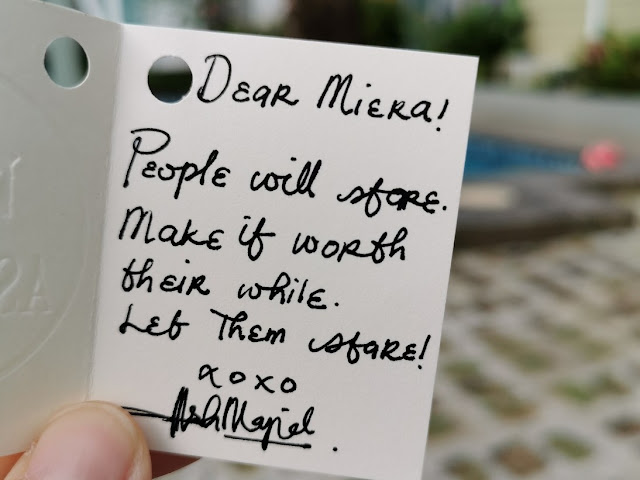 DEAR MIERA!
PEOPLE will stare.
MAKE it worth
their while.
LET THEM stare!
xoxo